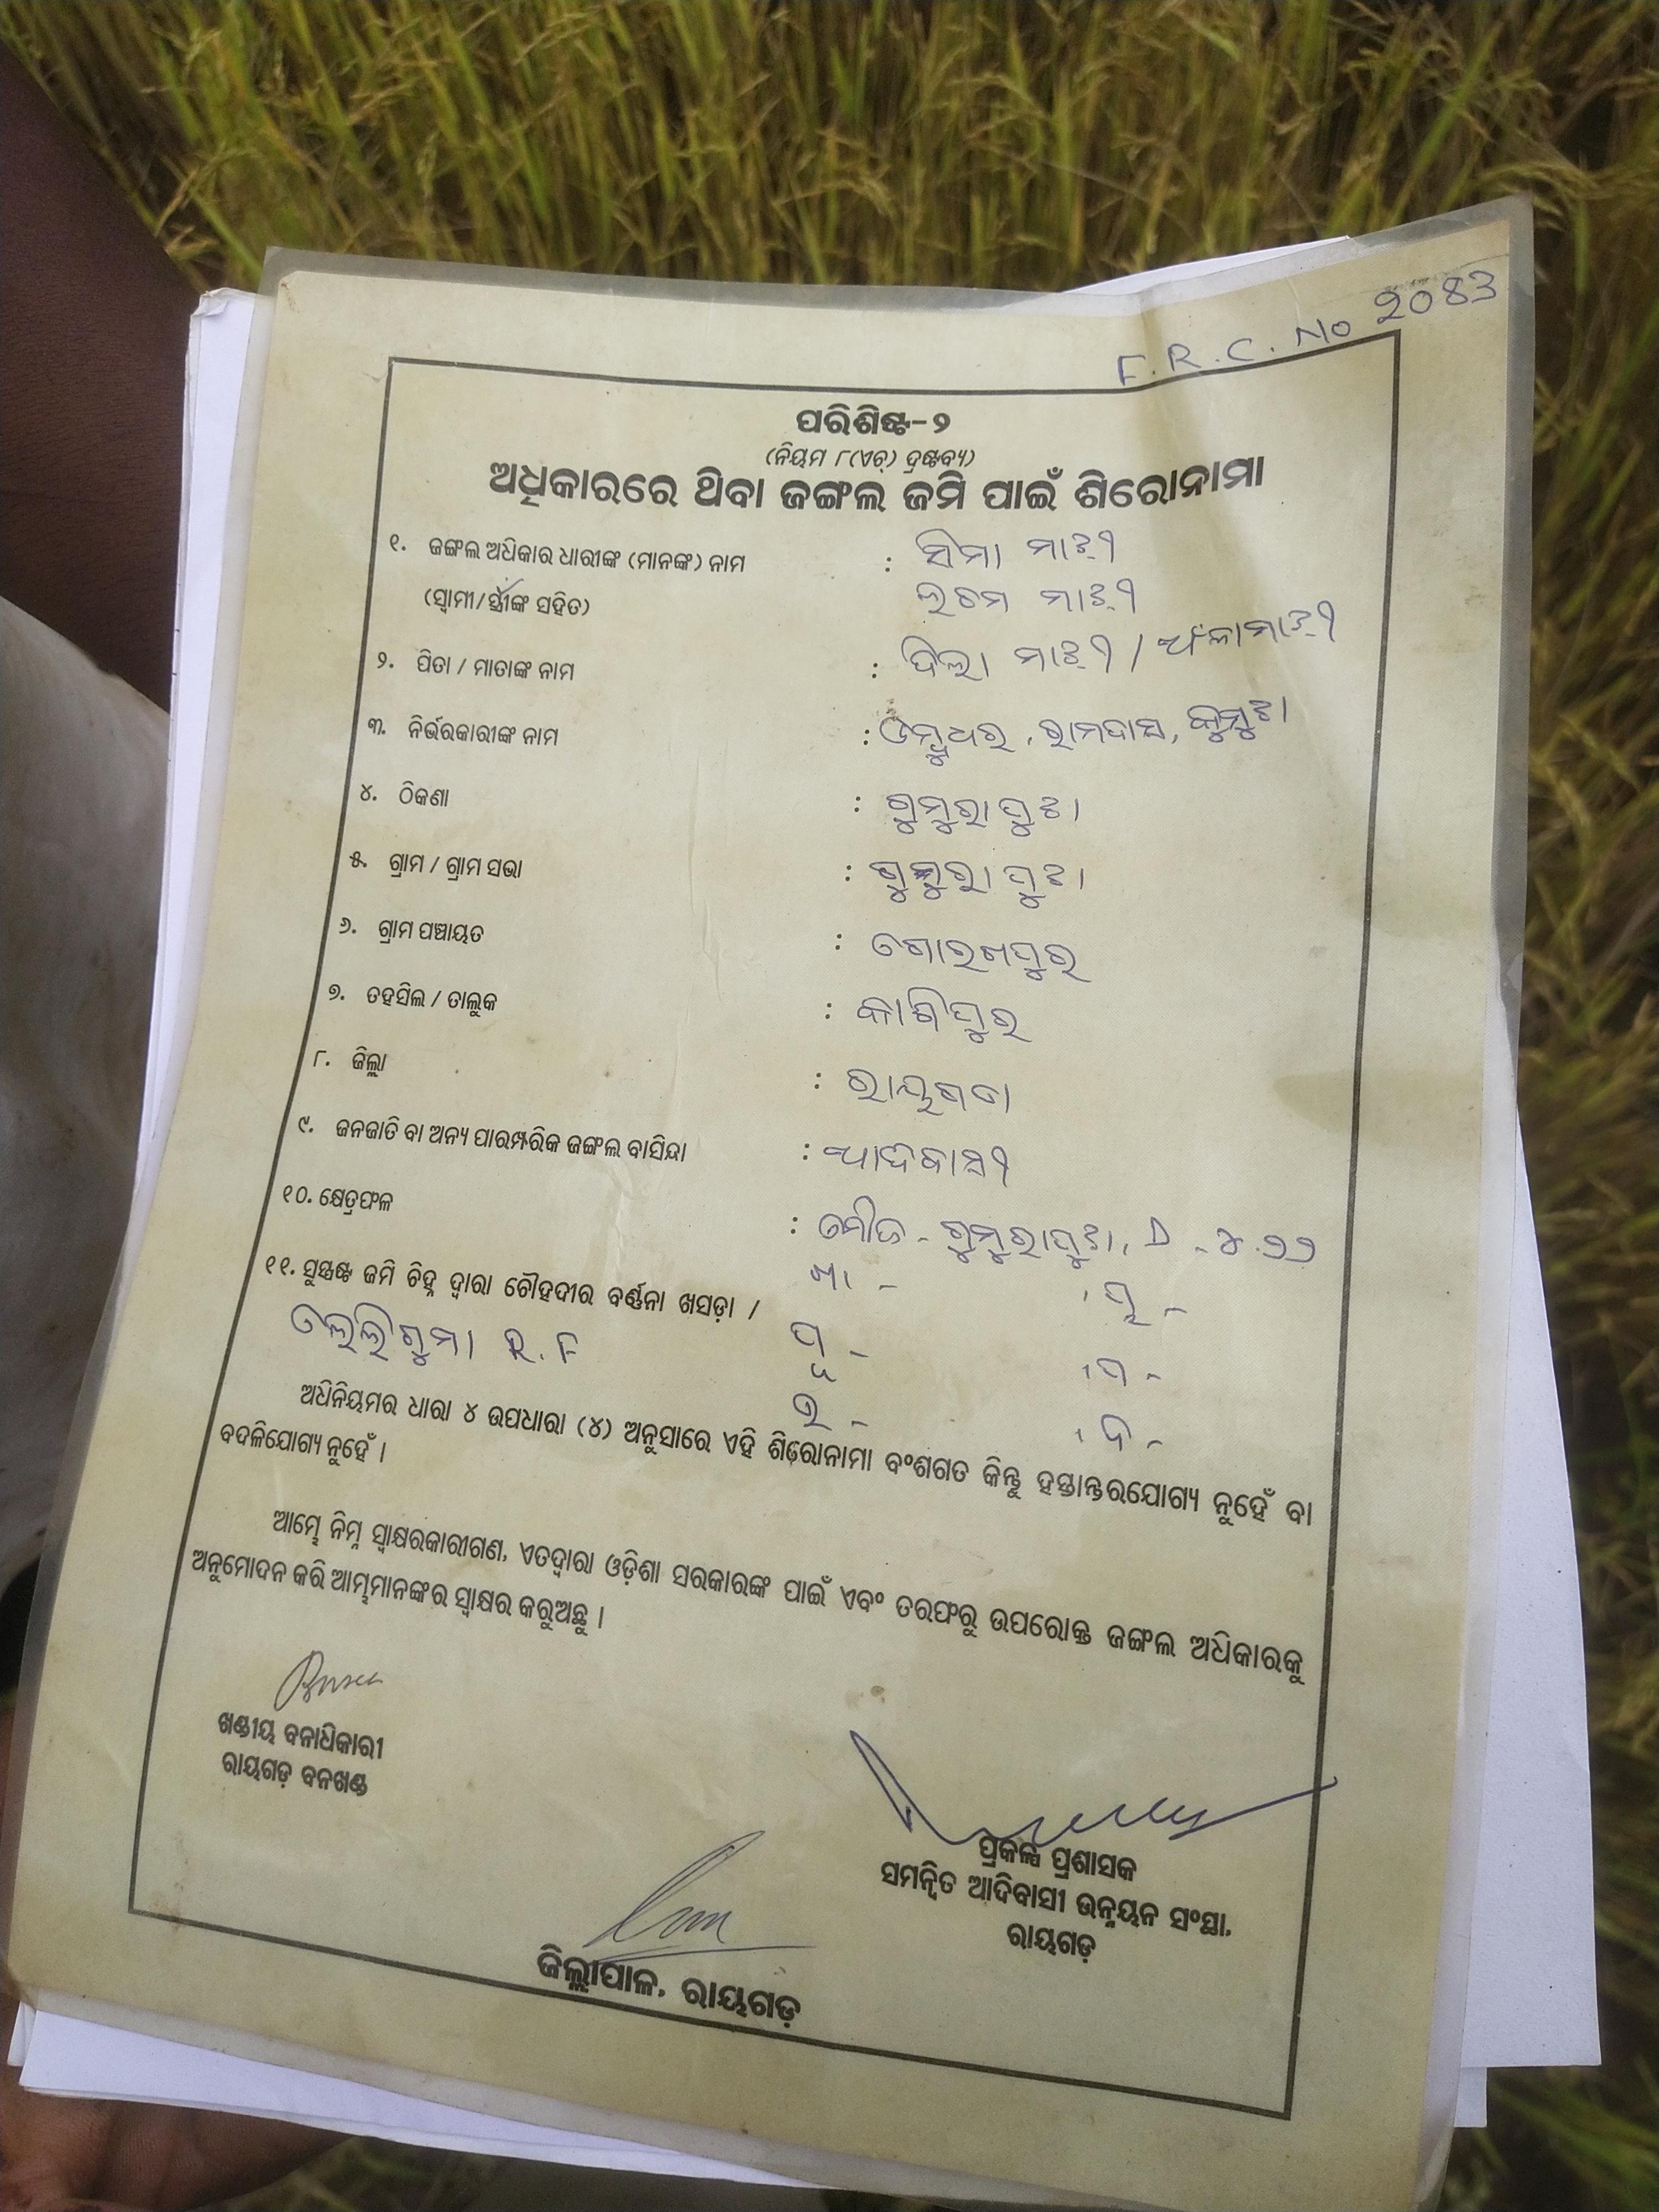 F.R.C. No 2083
ପରିଶିଷ୍ଟ-୨
(ନିୟମ ୮(ଏଚ୍) ଦ୍ରଷ୍ଟବ୍ୟ)
ଅଧିକାରରେ ଥିବା ଜଙ୍ଗଲ ଜମି ପାଇଁ ଶିରୋନାମା
୧. ଜଙ୍ଗଲ ଅଧିକାର ଧାରୀଙ୍କ (ମାନଙ୍କ) ନାମ : ସିମା ମାଝୀ
(ସ୍ୱାମୀ/ସ୍ତ୍ରୀଙ୍କ ସହିତ) ଲଚମ ମାଝୀ
୨. ପିତା / ମାତାଙ୍କ ନାମ : ଦିଲା ମାଝୀ /
୩. ନିର୍ଭରକାରୀଙ୍କ ନାମ : ଡମ୍ବୁଧର, ରାମଦାସ,
୪. ଠିକଣା : ଗୁମୁରାପୁଟା
୫. ଗ୍ରାମ / ଗ୍ରାମ ସଭା : ଗୁମୁରାପୁଟା
୬. ଗ୍ରାମ ପଞ୍ଚାୟତ : ଗୋରଖପୁର
୭. ତହସିଲ / ତାଲୁକ : କାଶିପୁର
୮. ଜିଲ୍ଲା : ରାୟଗଡା
୯. ଜନଜାତି ବା ଅନ୍ୟ ପାରମ୍ପରିକ ଜଙ୍ଗଲ ବାସିନ୍ଦା : ଆଦିବାସୀ
୧୦. କ୍ଷେତ୍ରଫଳ : ମୌଜା - ଗୁମୁରାପୁଟା, D - ୪.୨୨
ଖା - , ପ୍ଲ -
୧୧. ସୁସ୍ପଷ୍ଟ ଜମି ଚିହ୍ନ ଦ୍ୱାରା ଚୌହଦୀର ବର୍ଣ୍ଣନା ଖସଡ଼ା / ପୂ - , ପ -
ତେଲିଗୁମା R.F ଉ - , ଦ -
ଅଧିନିୟମର ଧାରା ୪ ଉପଧାରା (୪) ଅନୁସାରେ ଏହି ଶିରୋନାମା ବଂଶଗତ କିନ୍ତୁ ହସ୍ତାନ୍ତରଯୋଗ୍ୟ ନୁହେଁ ବା
ବଦଳିଯୋଗ୍ୟ ନୁହେଁ ।
ଆମ୍ଭେ ନିମ୍ନ ସ୍ୱାକ୍ଷରକାରୀଗଣ, ଏତଦ୍ୱାରା ଓଡ଼ିଶା ସରକାରଙ୍କ ପାଇଁ ଏବଂ ତରଫରୁ ଉପରୋକ୍ତ ଜଙ୍ଗଲ ଅଧିକାରକୁ
ଅନୁମୋଦନ କରି ଆମ୍ଭମାନଙ୍କର ସ୍ୱାକ୍ଷର କରୁଅଛୁ ।
ଖଣ୍ଡୀୟ ବନାଧିକାରୀ
ରାୟଗଡ଼ ବନଖଣ୍ଡ
ପ୍ରକଳ୍ପ ପ୍ରଶାସକ
ସମନ୍ୱିତ ଆଦିବାସୀ ଉନ୍ନୟନ ସଂସ୍ଥା,
ରାୟଗଡ଼
ଜିଲ୍ଲାପାଳ, ରାୟଗଡ଼